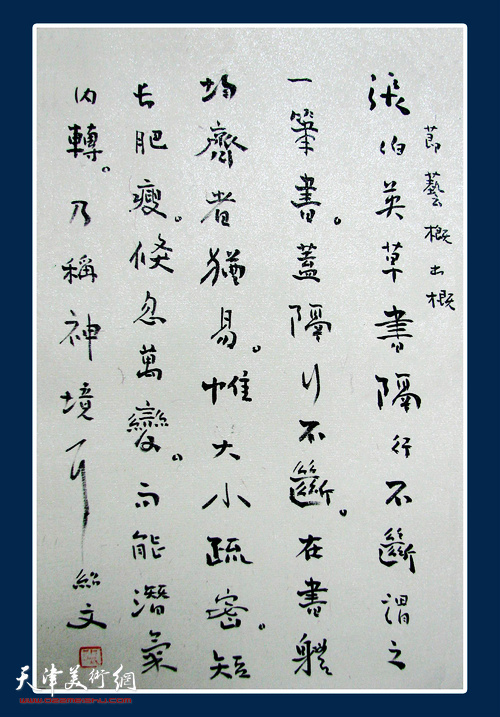 節藝概書概
張伯英草書隔行不斷謂之
一筆書。蓋隔行不斷。在書體
均齊者猶易。惟大小疏密。短
長肥瘦。倏忽萬變。而能潛氣
内轉。乃稱神境耳 紹文
天津美術網